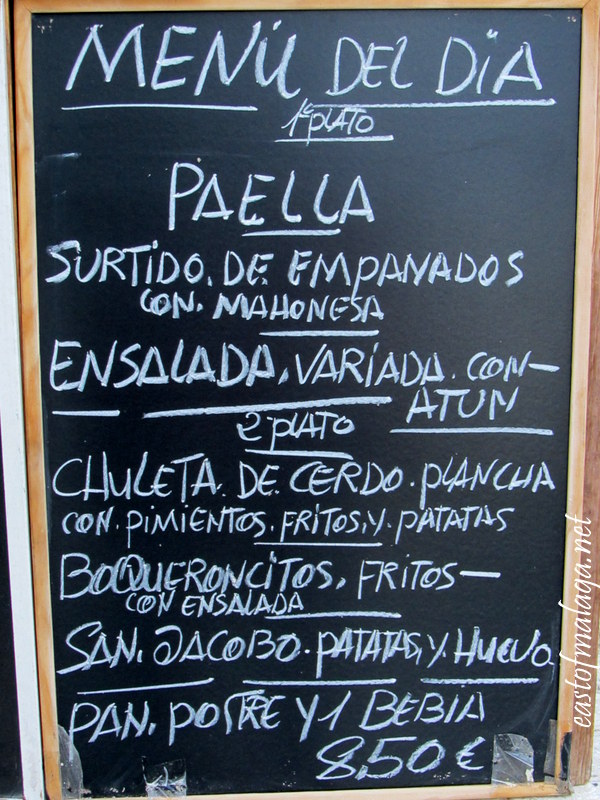 MENÚ DEL DÍA
1º PLATO
PAELLA
SURTIDO. DE EMPANADOS
CON. MAHONESA
ENSALADA. VARIADA. CON-
ATUN
2 PLATO
CHULETA. DE CERDO. PLANCHA
CON. PIMIENTOS. FRITOS, Y. PATATAS
BOQUERONCITOS. FRITOS-
CON ENSALADA
SAN. JACOBO. PATATAS, Y. HUEVO
PAN, POSTRE Y 1 BEBIA
8,50 €
eastofmalaga.net